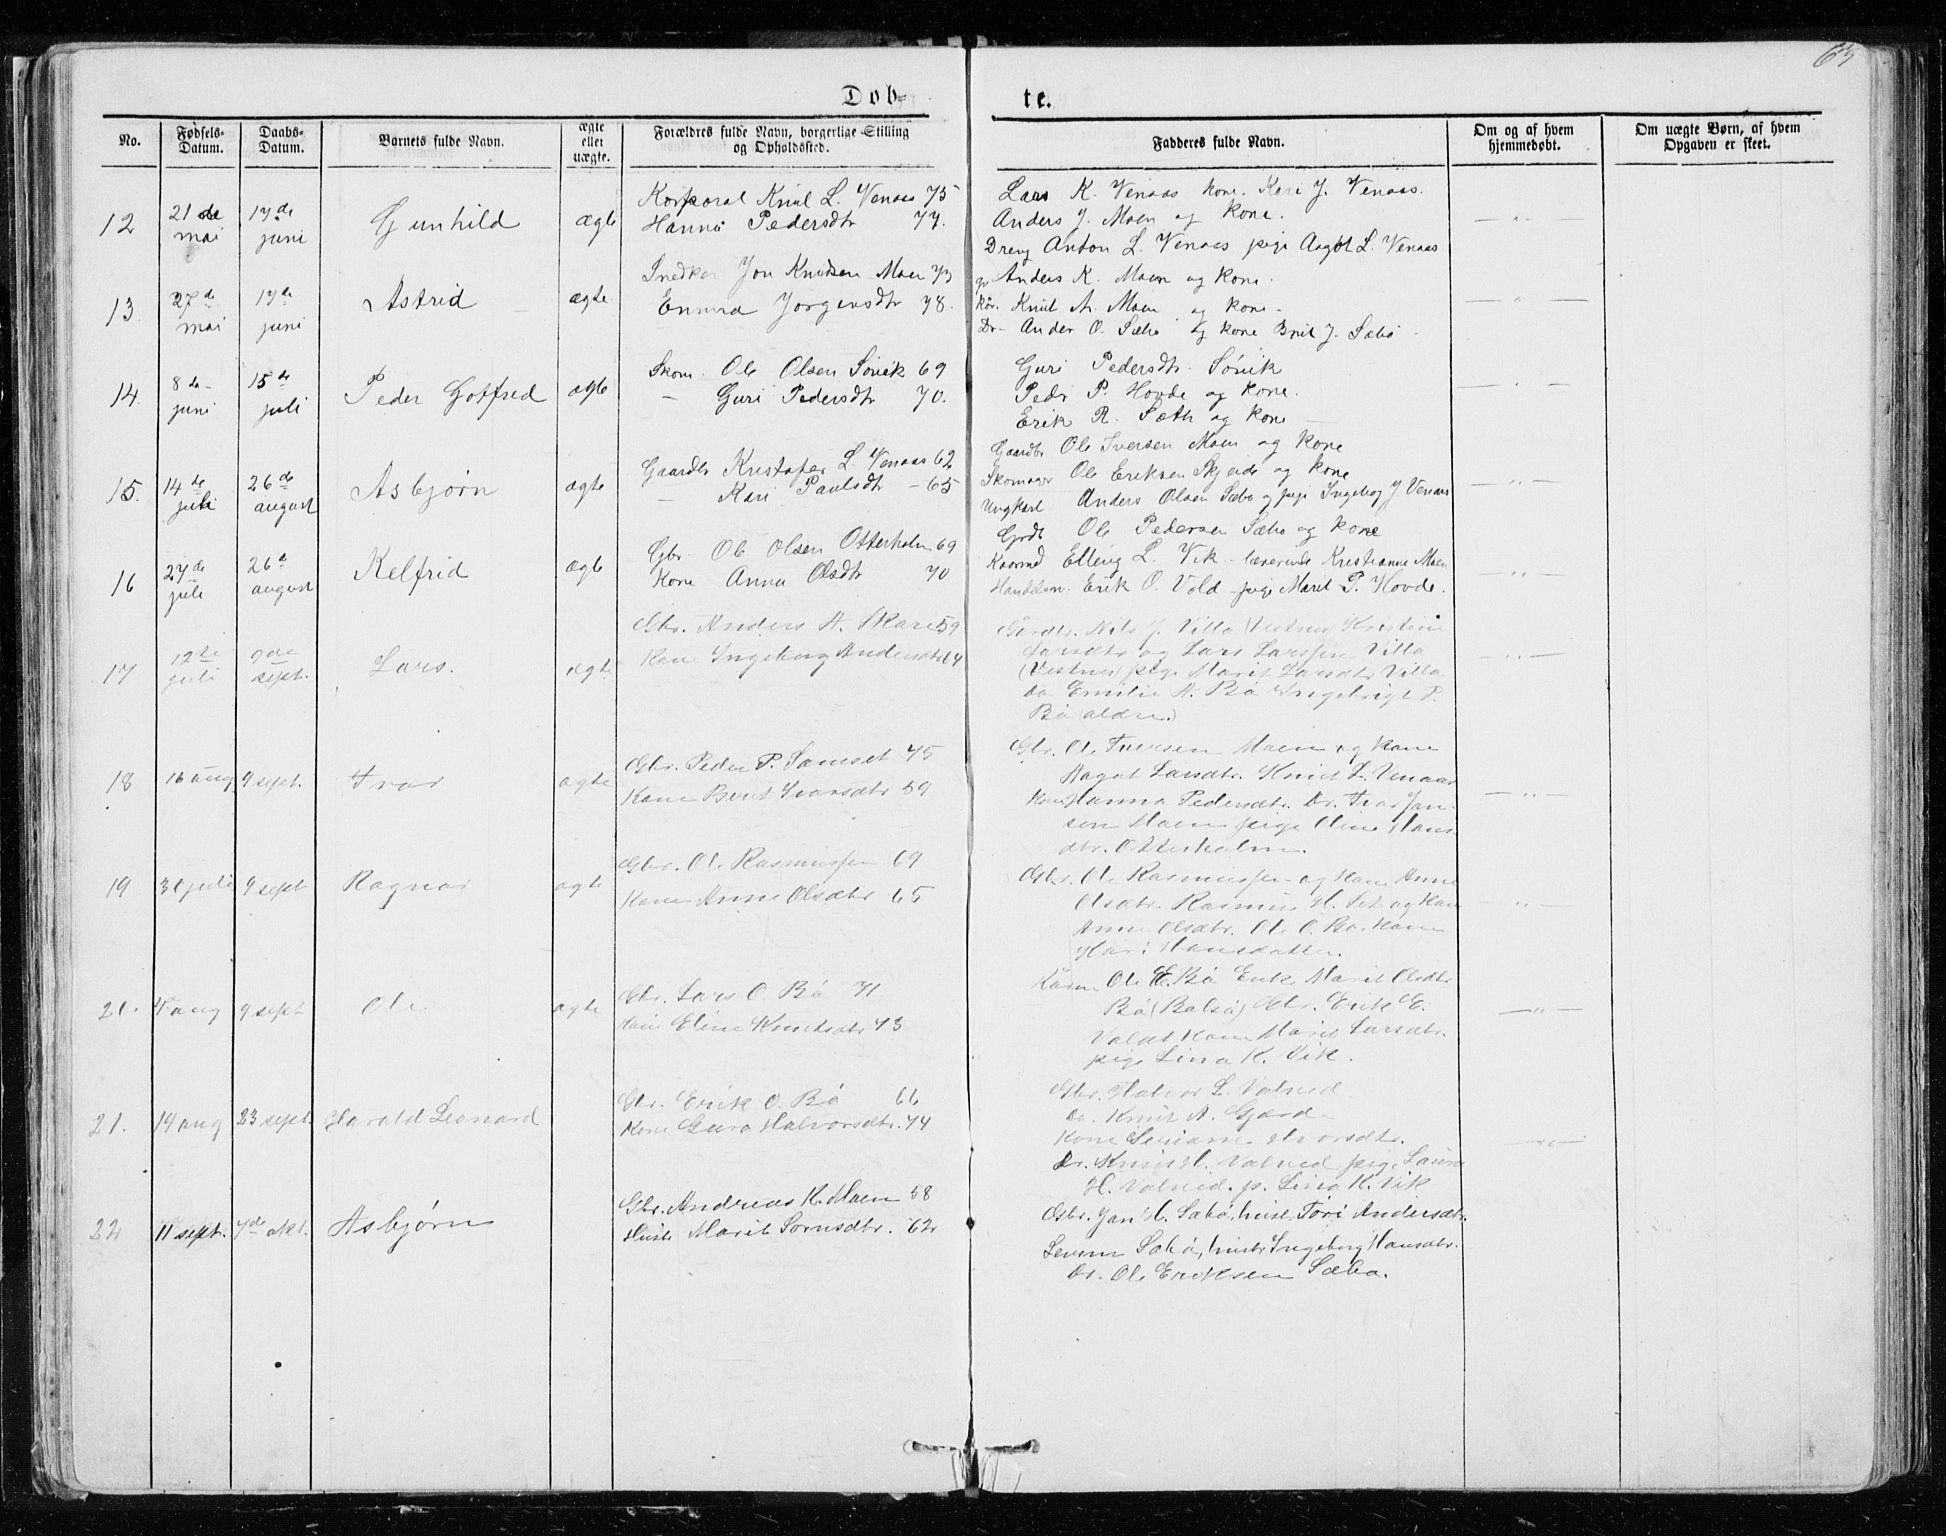 63
Døb-
te.
No.
Fødsels-
Datum.
Daabs-
Datum.
Barnets fulde Navn.
ægte
eller
uægte.
Forældres fulde Navn, borgerlige Stilling
og Opholdssted.
Fadderes fulde Navn.
Om og af hvem
hjemmedøbt.
Om uægte Børn, af hvem
Opgaven er skeet.
12
21 de
mai
17 de
juni
Gunhild
ægte
Korporal Knut L. Venaas 75
Hanna Pedersdtr 77.
Lars K. Venaas kone. Kari J. Venaas.
Anders J. Moen og kone.
Dreng Anton L. Venaas pige Aagot L. Venaas
— " —
13.
27 de
mai
17 de
juni
Astrid
ægte
Snedker Jon Knudsen Moen 73
Emma Jorgensdtr 78.
Anders K. Moen og kone.
Knut A. Moen og kone.
Dr. Ander O. Sæbø og kone Brit J. Sæbø
— " —
14.
8 de
juni
15 de
juli
Peder Gotfred
ægte
Skom. Ole Olsen Sòvik 69
— Guri Pedersdtr 70.
Guri Pedersdtr. Sòvik
Pedr P. Hovde og kone.
Erik R. Sæth og kone
— " —
15.
14 de
juli
26 de
august
Asbjørn
ægte
Gaardbr Kristofer L. Venaas 62
— Kari Paulsdtr — 65
Gaardbr Ole Iversen Moen og kone
Skomager Ole Eriksen Skjeide og kone
Ungkarl Anders Olsen Sæbø og pige Ingeborg J. Venaas
Grdb Ole Pedersen Sæbø og kone
— " —
16
27 de
juli
26 d
august
Kelfrid
ægte
Gbr. Ole Olsen Otterholm 69
Kone Anna Olsdtr 70
Elling L. Vik lærerinde Kristianne Moen
Handelsm. Erik O. Vold pige Marit P. Hovde.
— " —
17
12 te
juli
9 de
sept.
Lars.
ægte
Gbr. Anders A. Skare 59
Kone Ingeborg Andersdtr 64
Gardbr. Nils J. Villa (Vestnes) Kristine
Larsdtr og Lars Larssen Villa
(Vestnes) pige Marit Larsdtr Villa
Do Emilie A. Bø Ingebrigt P.
Bø (aldre)
— " —
18
16 aug
9 sept.
Ivar
ægte
Gbr. Peder P. Samset 75
Kone Berit Ivarsdtr 59
Gbr. Ole Iversen Moen og kone
Aagot Larsdtr. Knut L. Venaas
kone Hanna Pedersdtr. Dr. Ivar Jon-
sen Moen pige Oline Hans-
dtr. Otterholm.
— " —
19
30 juli
9 sept
Ragnar
ægte
Gbr. Ole Rasmussen 69
Kone Anne Olsdtr 65
Gbr. Ole Rasmussen og kone Anne
Olsdtr. Rasmus H. Set og kone
Anne Olsdtr. Ole O. Bø. kone
Kari Hansdatter.
— " —
20.
aug
9 sept
Ole
ægte
Gbr. Lars O. Bø 71
Kone Eline Knutsdtr 73
Kårm Ole E. Bø Enke Marit Olsdtr
Bø (Bolsø) Gbr. Erik E.
kone Marit Larsdtr.
pige Lina K. Vik.
— " —
21.
19 aug
23 sept.
Harald Leonard
Gbr. Erik O. Bø 66
Kone Guro Halvorsdtr. 74
Gbr. Halvor L. Valved
Do. Knut A. Gjærde
Kone
Dr. Knut H. Valved pige Laura
H. Valved. p. Lina K. Vik
— " —
22
11 sept.
7 de okt.
Asbjørn
Gbr. Andreas K. Moen 58
Hustr Marit Sørensdtr. 62
Gbr. Jon H. Sæbø, hust. Tòri Andersdtr.
Sæbø, hustr Ingeborg Hansdtr.
Dr. Ole Eriksen Sæbø.